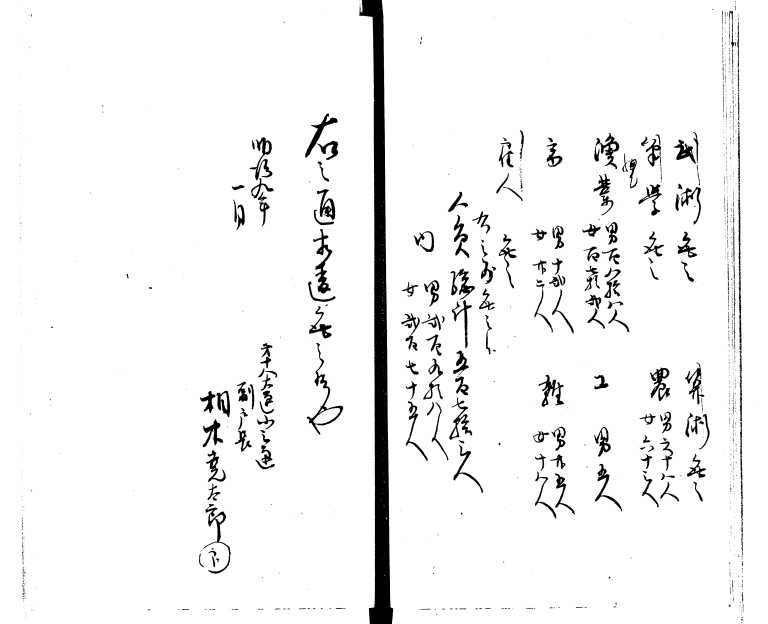 武術 無之
算術 無之
筆学 無之
農 男六十八人
女六十三人
漁業 男百八拾八人
女百七拾弐人
工 男五人
商 男十弐人
女廿二人
雑 男廿五人
女十八人
雇人 無之
右之外無之候
人員総計五百七拾三人
内 男弐百九拾八人
女弐百七十五人
右之通相違無之候也
明治九年
一月
副戸長
相木
太郎